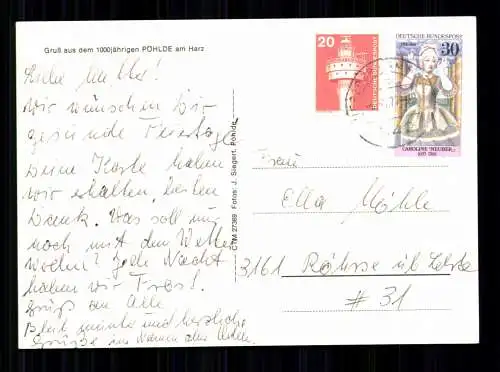 Gruß aus dem 1000jährigen PÖHLDE am Harz
Liebe Mutter!
Wir wünschen Dir
gesunde Feiertage
Deine Karte haben
wir erhalten, besten
Dank. Was soll nur
noch mit dem Wetter
werden? Jede Nacht
haben wir Frost.
Grüß an Alle
Bleib gesund und herzliche
Grüße im Namen aller
CTM 27369 Fotos: J. Siegert, Pöhlde
20
DEUTSCHE BUNDESPOST
DEUTSCHE BUNDESPOST
30
CAROLINE NEUBER
1697-1760
Frau
Ella Möhle
3161 Röhrse üb Lehrte
# 31